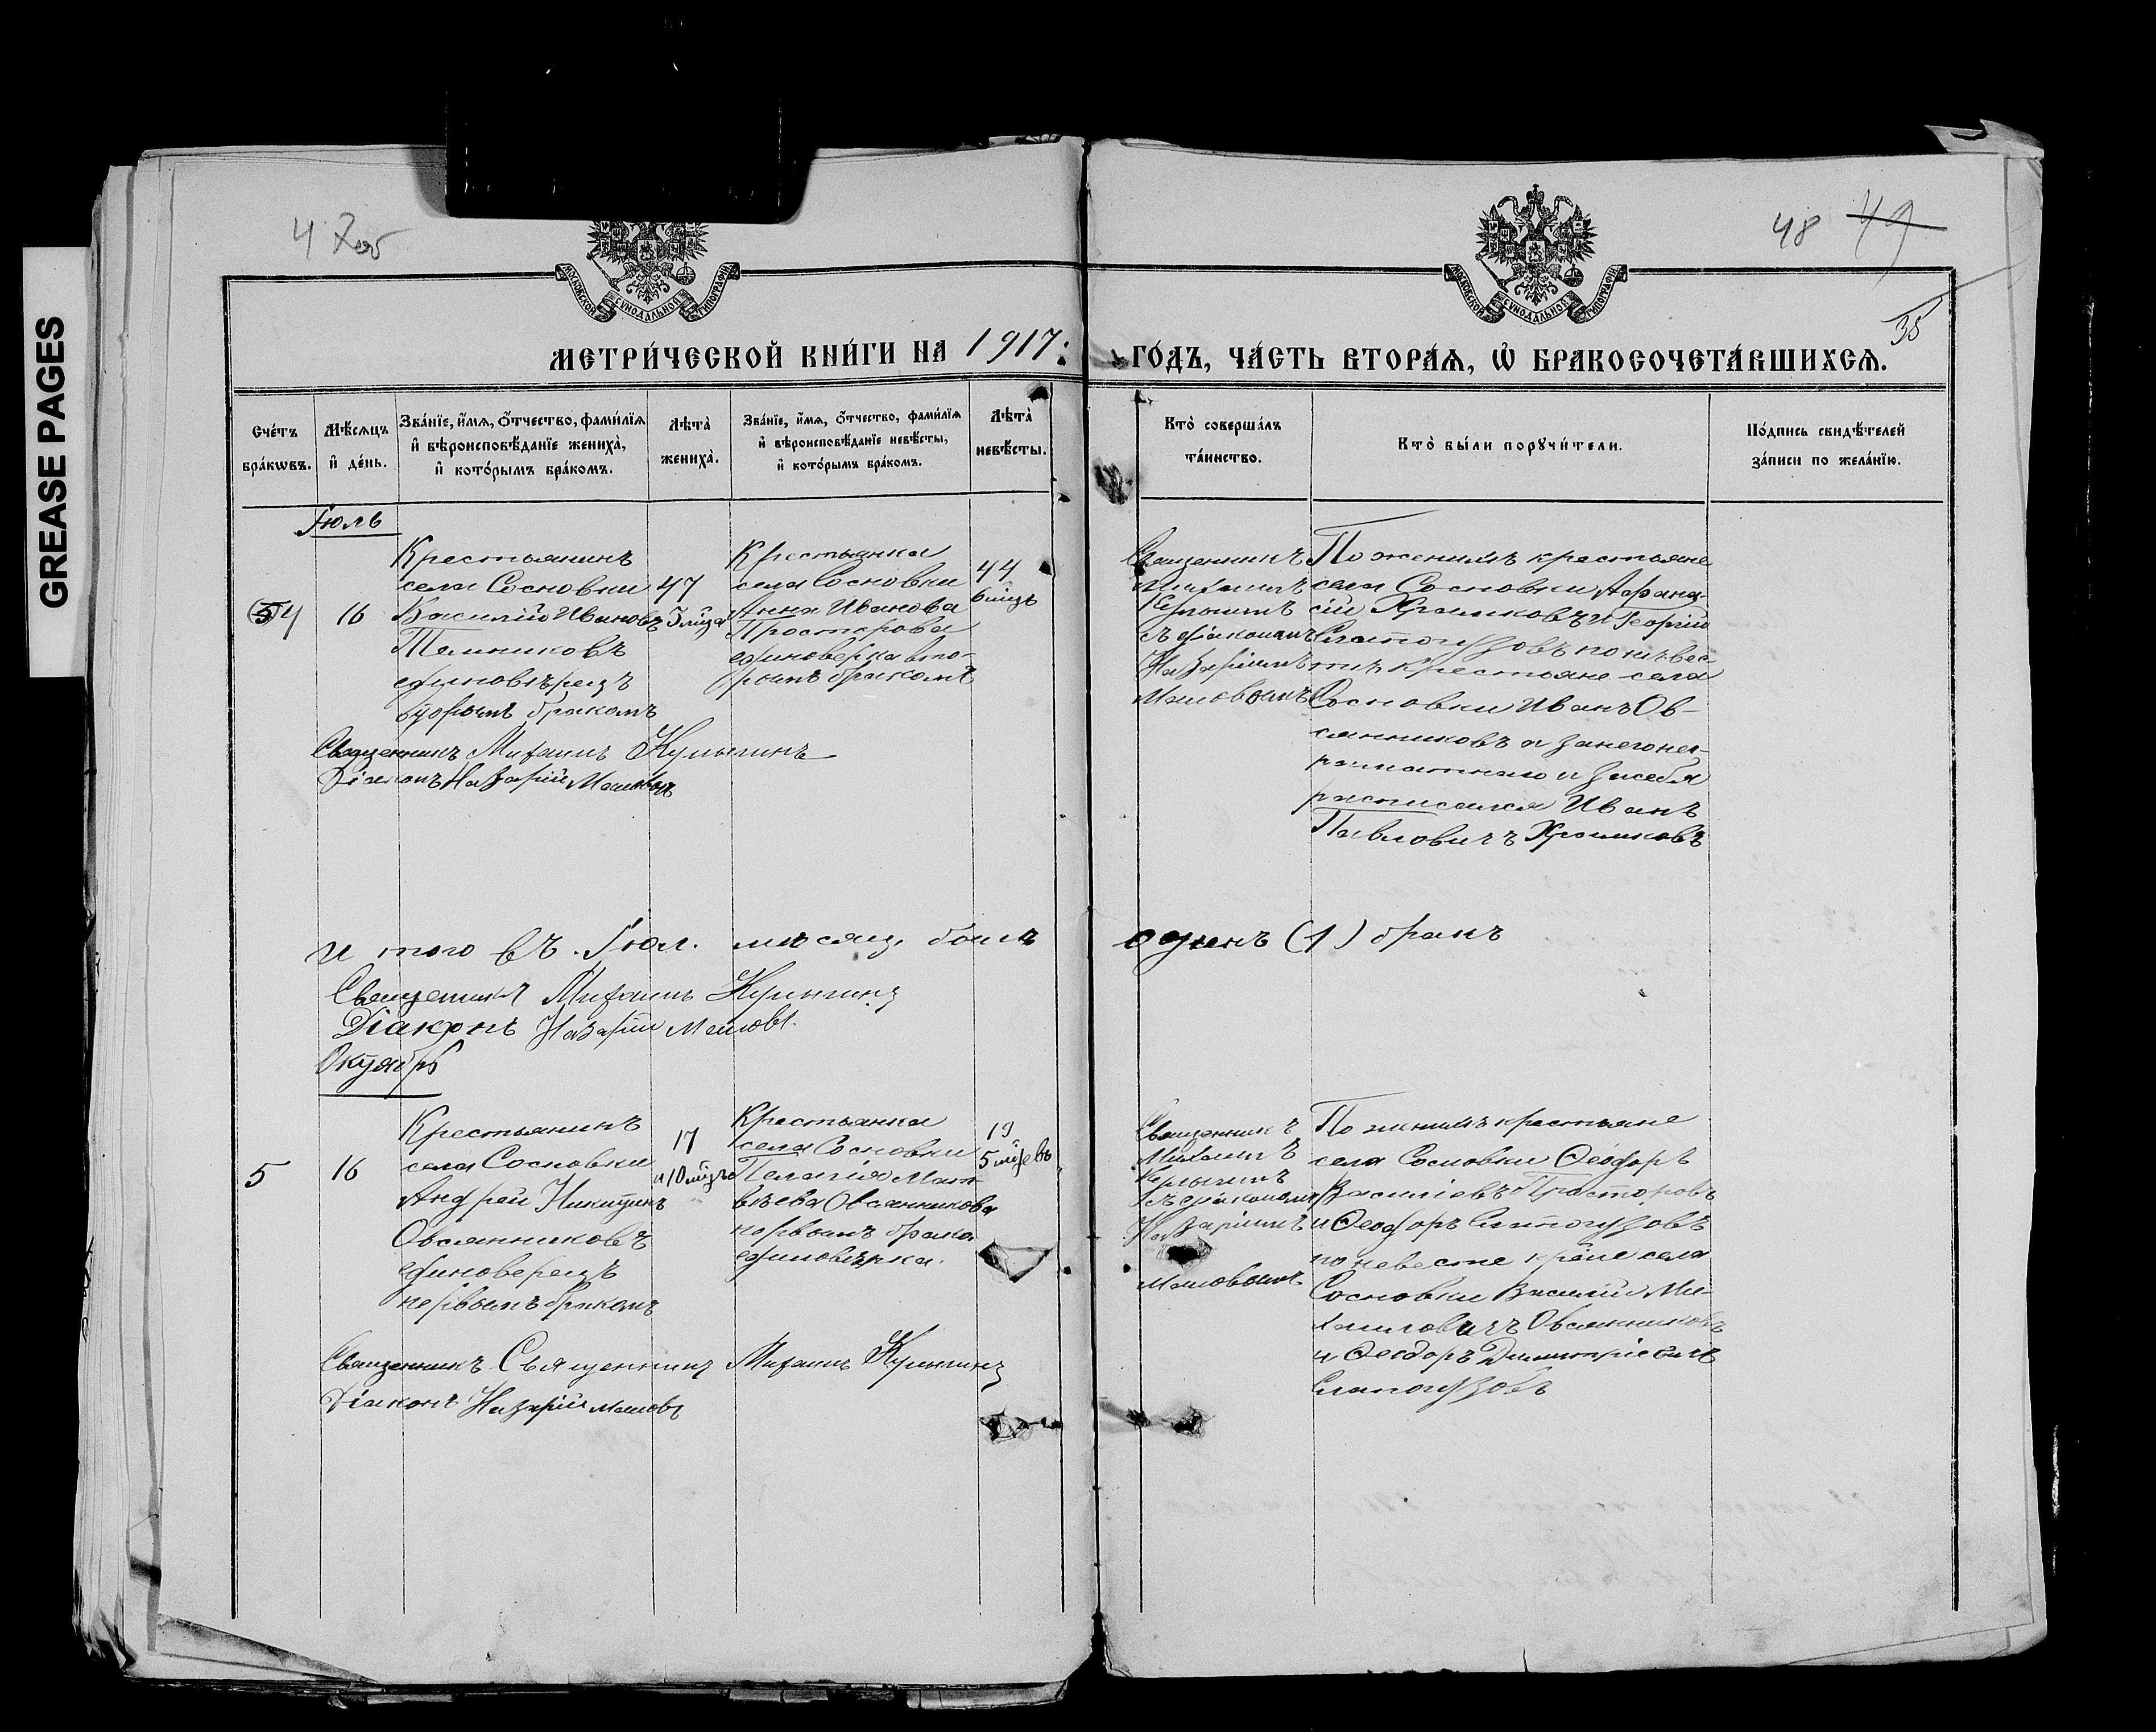 GREASE PAGES
48 49
35
МОСКОВСКОЙ СѴНОДАЛЬНОЙ ТИПОГРАФІИ
МОСКОВСКОЙ СѴНОДАЛЬНОЙ ТИПОГРАФІИ
МЕТРИ́ЧЕСКОЙ КНИ́ГИ НА 1917:
ГО́ДЪ, ЧА́СТЬ ВТОРА́Я, Ѿ БРАКОСОЧЕТА́ВШИХСѦ.
Сче́тъ
бра́кѡвъ.
Мѣ́сяцъ
и҆ де́нь.
Зва́нїе, и҆́мя, ѻ҆́тчество, фами́лїя
и҆ вѣроисповѣ́данїе жениха̀,
и҆ кото́рымъ бра́комъ.
Лѣта̀
жениха̀.
Зва́нїе, и҆́мя, ѻ҆́тчество, фами́лїя
и҆ вѣроисповѣ́данїе невѣ́сты,
и҆ кото́рымъ бра́комъ.
Лѣта̀
невѣ́сты.
Кто̀ соверша́лъ
та́инство.
Кто̀ бы́ли порꙋчи́тели.
По́дпись свидѣ́телей
за́писи по жела́нїю.
Іюль
4
16
Крестьянинъ
села Сосновки
Василій Ивановъ
единовѣрецъ
вторымъ бракомъ
47
Крестьянка
села Сосновки
Анна Иванова
Просторова
единоверка вто-
рымъ бракомъ
44
6 мцъ
Священникъ
Михаилъ
съ діакономъ
Назаріемъ
По женихѣ крестьяне
села Сосновки Афана-
сій Храмковъ и Георгій
по невес-
тѣ крестьяне села
Сосновки Иванъ Ов-
сянниковъ и за него не-
грамотнаго и за себя
росписался Иванъ
Павловичъ Храмковъ
Священникъ Михаилъ
Діаконъ Назарій
и того въ Іюл. месяц. былъ
одинъ (1) бракъ
Священникъ Михаилъ
Діаконъ Назарій
Октябрь
5
16
Крестьянинъ
села Сосновки
Андрей Никитинъ
Овсянниковъ
единоверецъ
первымъ бракомъ
17
и 10 мцъ
Крестьянка
села Сосновки
Пелагія Мат-
вѣева Овсянникова
первымъ брака
единовѣрка.
19
5 мцевъ
Священникъ
Михаилъ
съ діакономъ
Назаріемъ
По женихѣ крестьяне
села Сосновки Ѳеодоръ
Василіевъ Просторовъ
и Ѳеодоръ
по невесте кр-не села
Сосновки Василій Ми-
хаиловичъ Овсянниковъ
и Ѳеодоръ Димитріевичъ
Священникъ Священникъ Михаилъ
Діаконъ Назарій